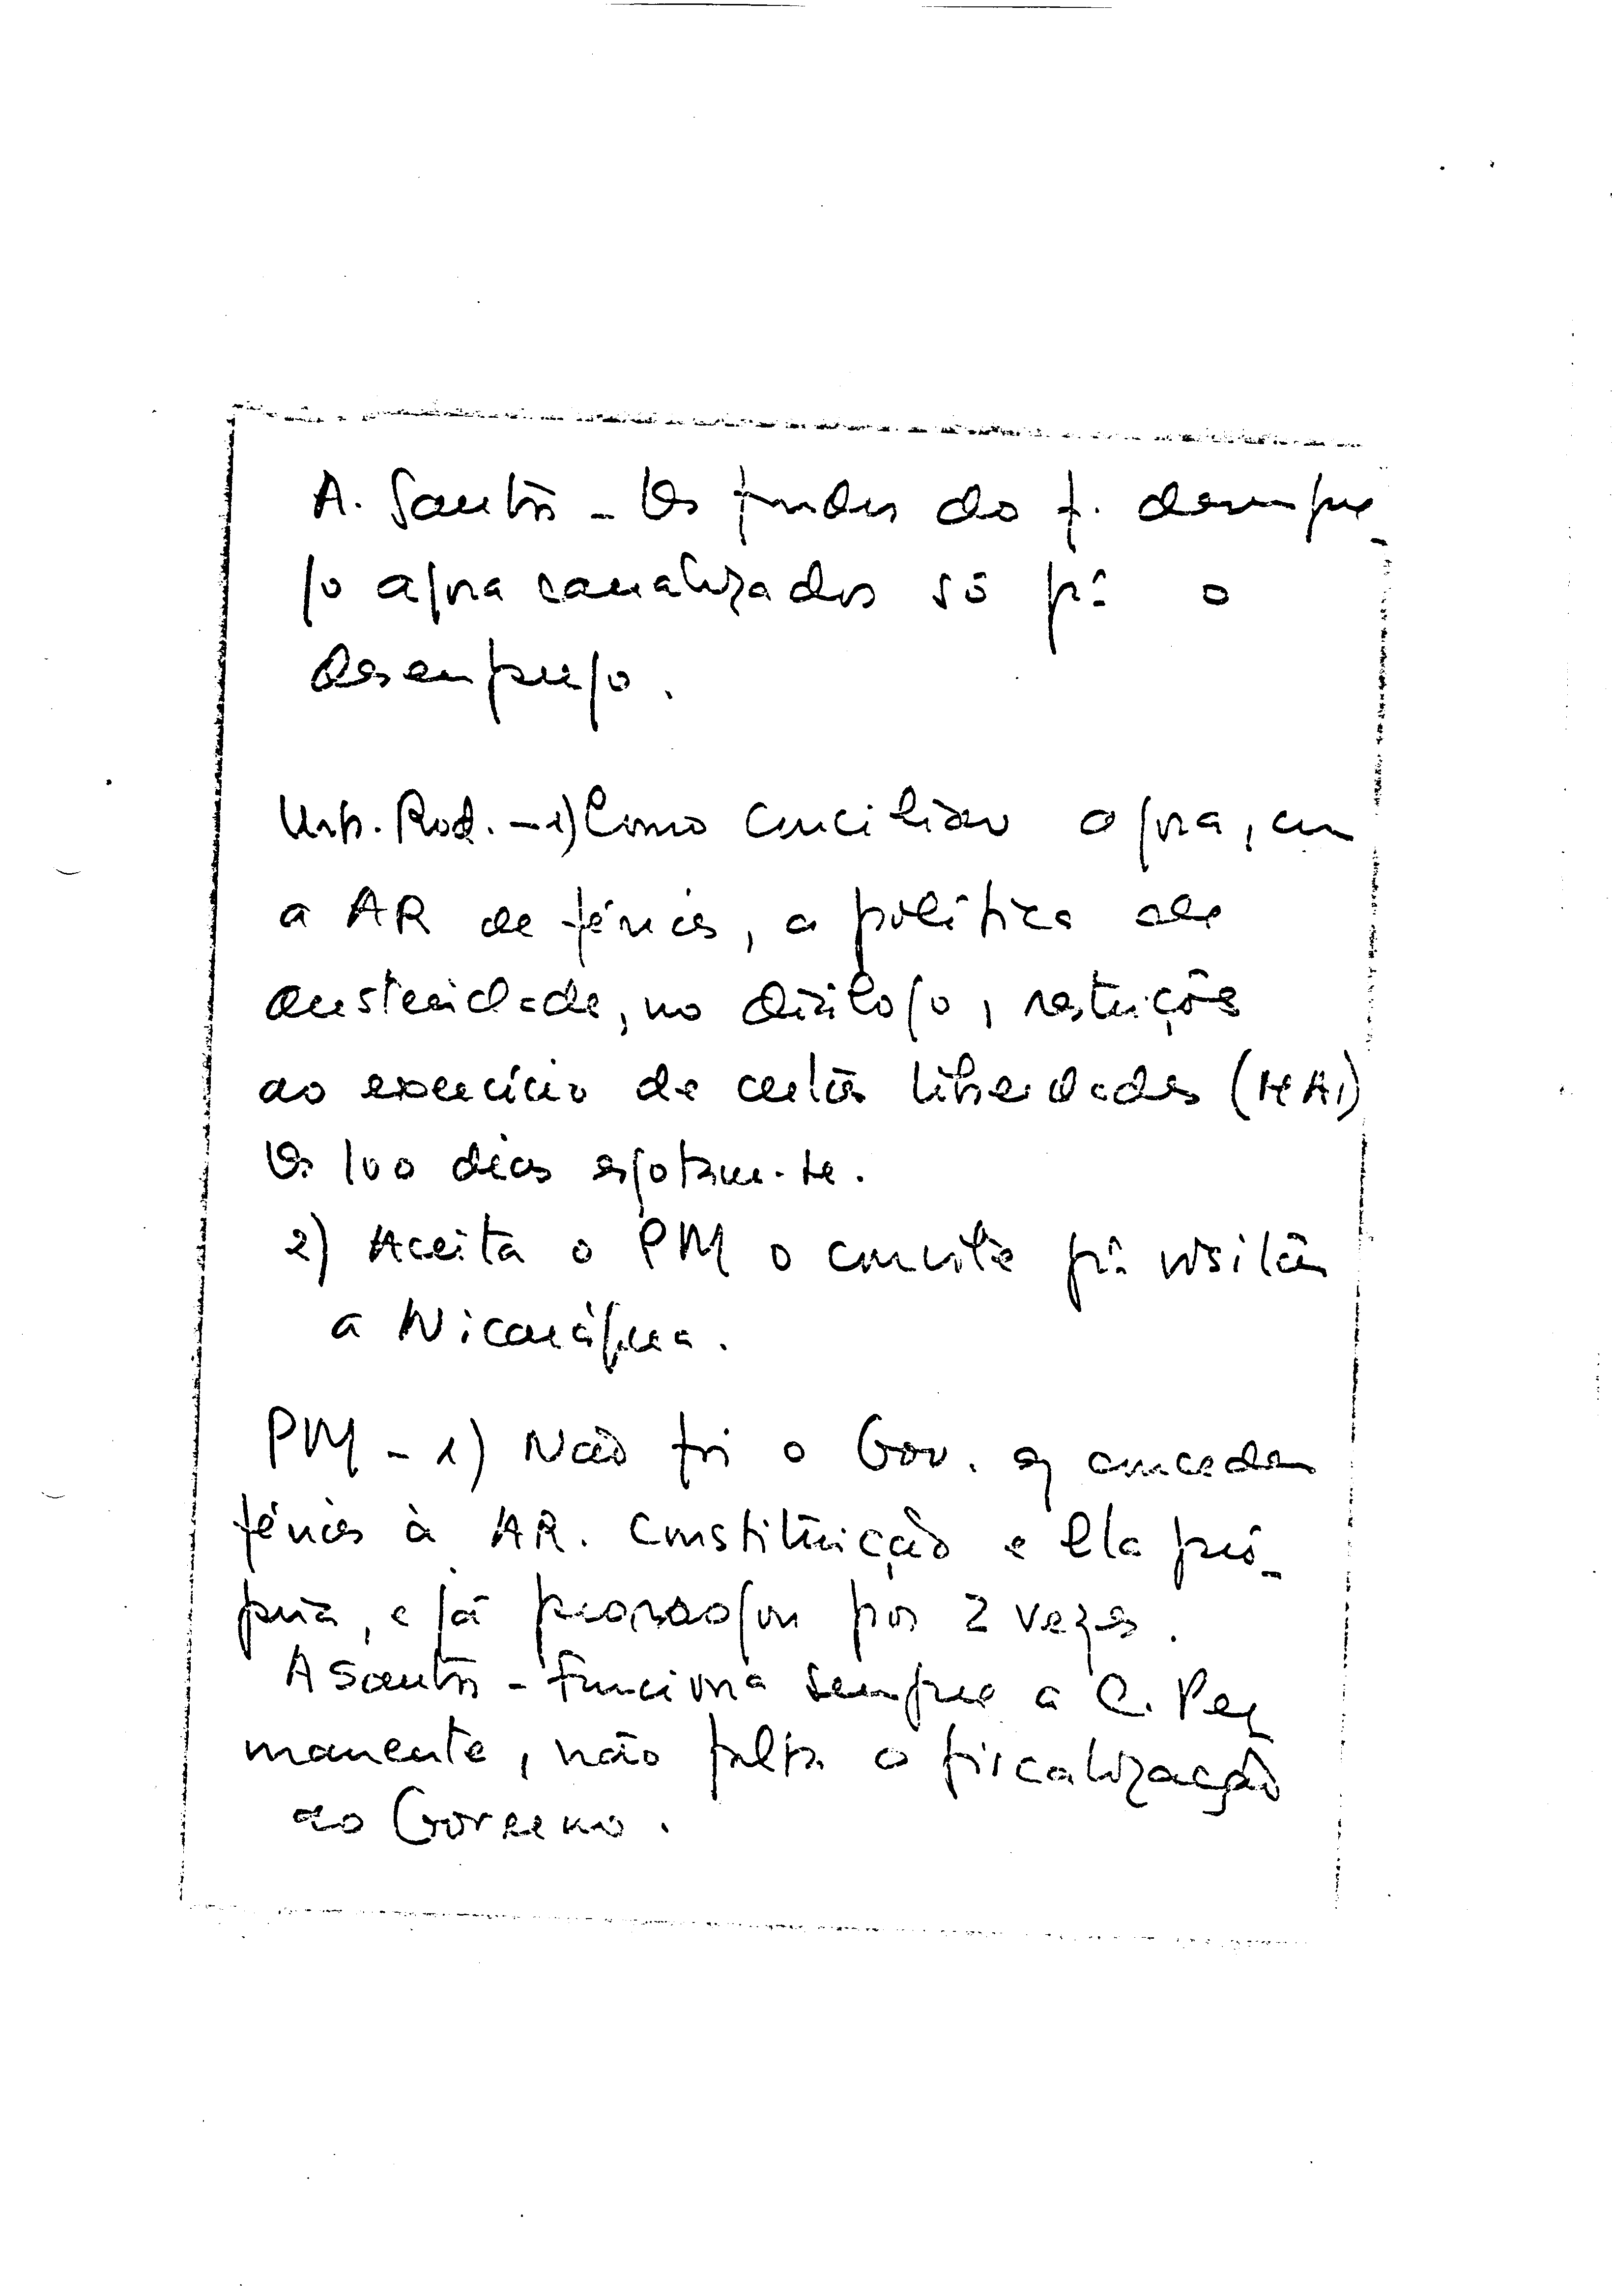 A. Santos - Os fundos do f. desempre-
go agora canalizados só pª o
Desemprego.
Urb. Rod. - 1) Como conciliar agora, com
a AR de férias, a política de
austeridade, no diálogo, restrições
ao exercício de certas liberdades (MAI)
Os 100 dias esgotam-se.
2) Aceita o PM o convite pª visitar
a Nicarágua.
PM - 1) Não foi o Gov. q concedeu
férias à AR. Constituição e ela pró-
pria, e já prorrogou por 2 vezes.
A Santos - Funciona sempre a C. Per
manente, não falta a fiscalização
ao Governo.